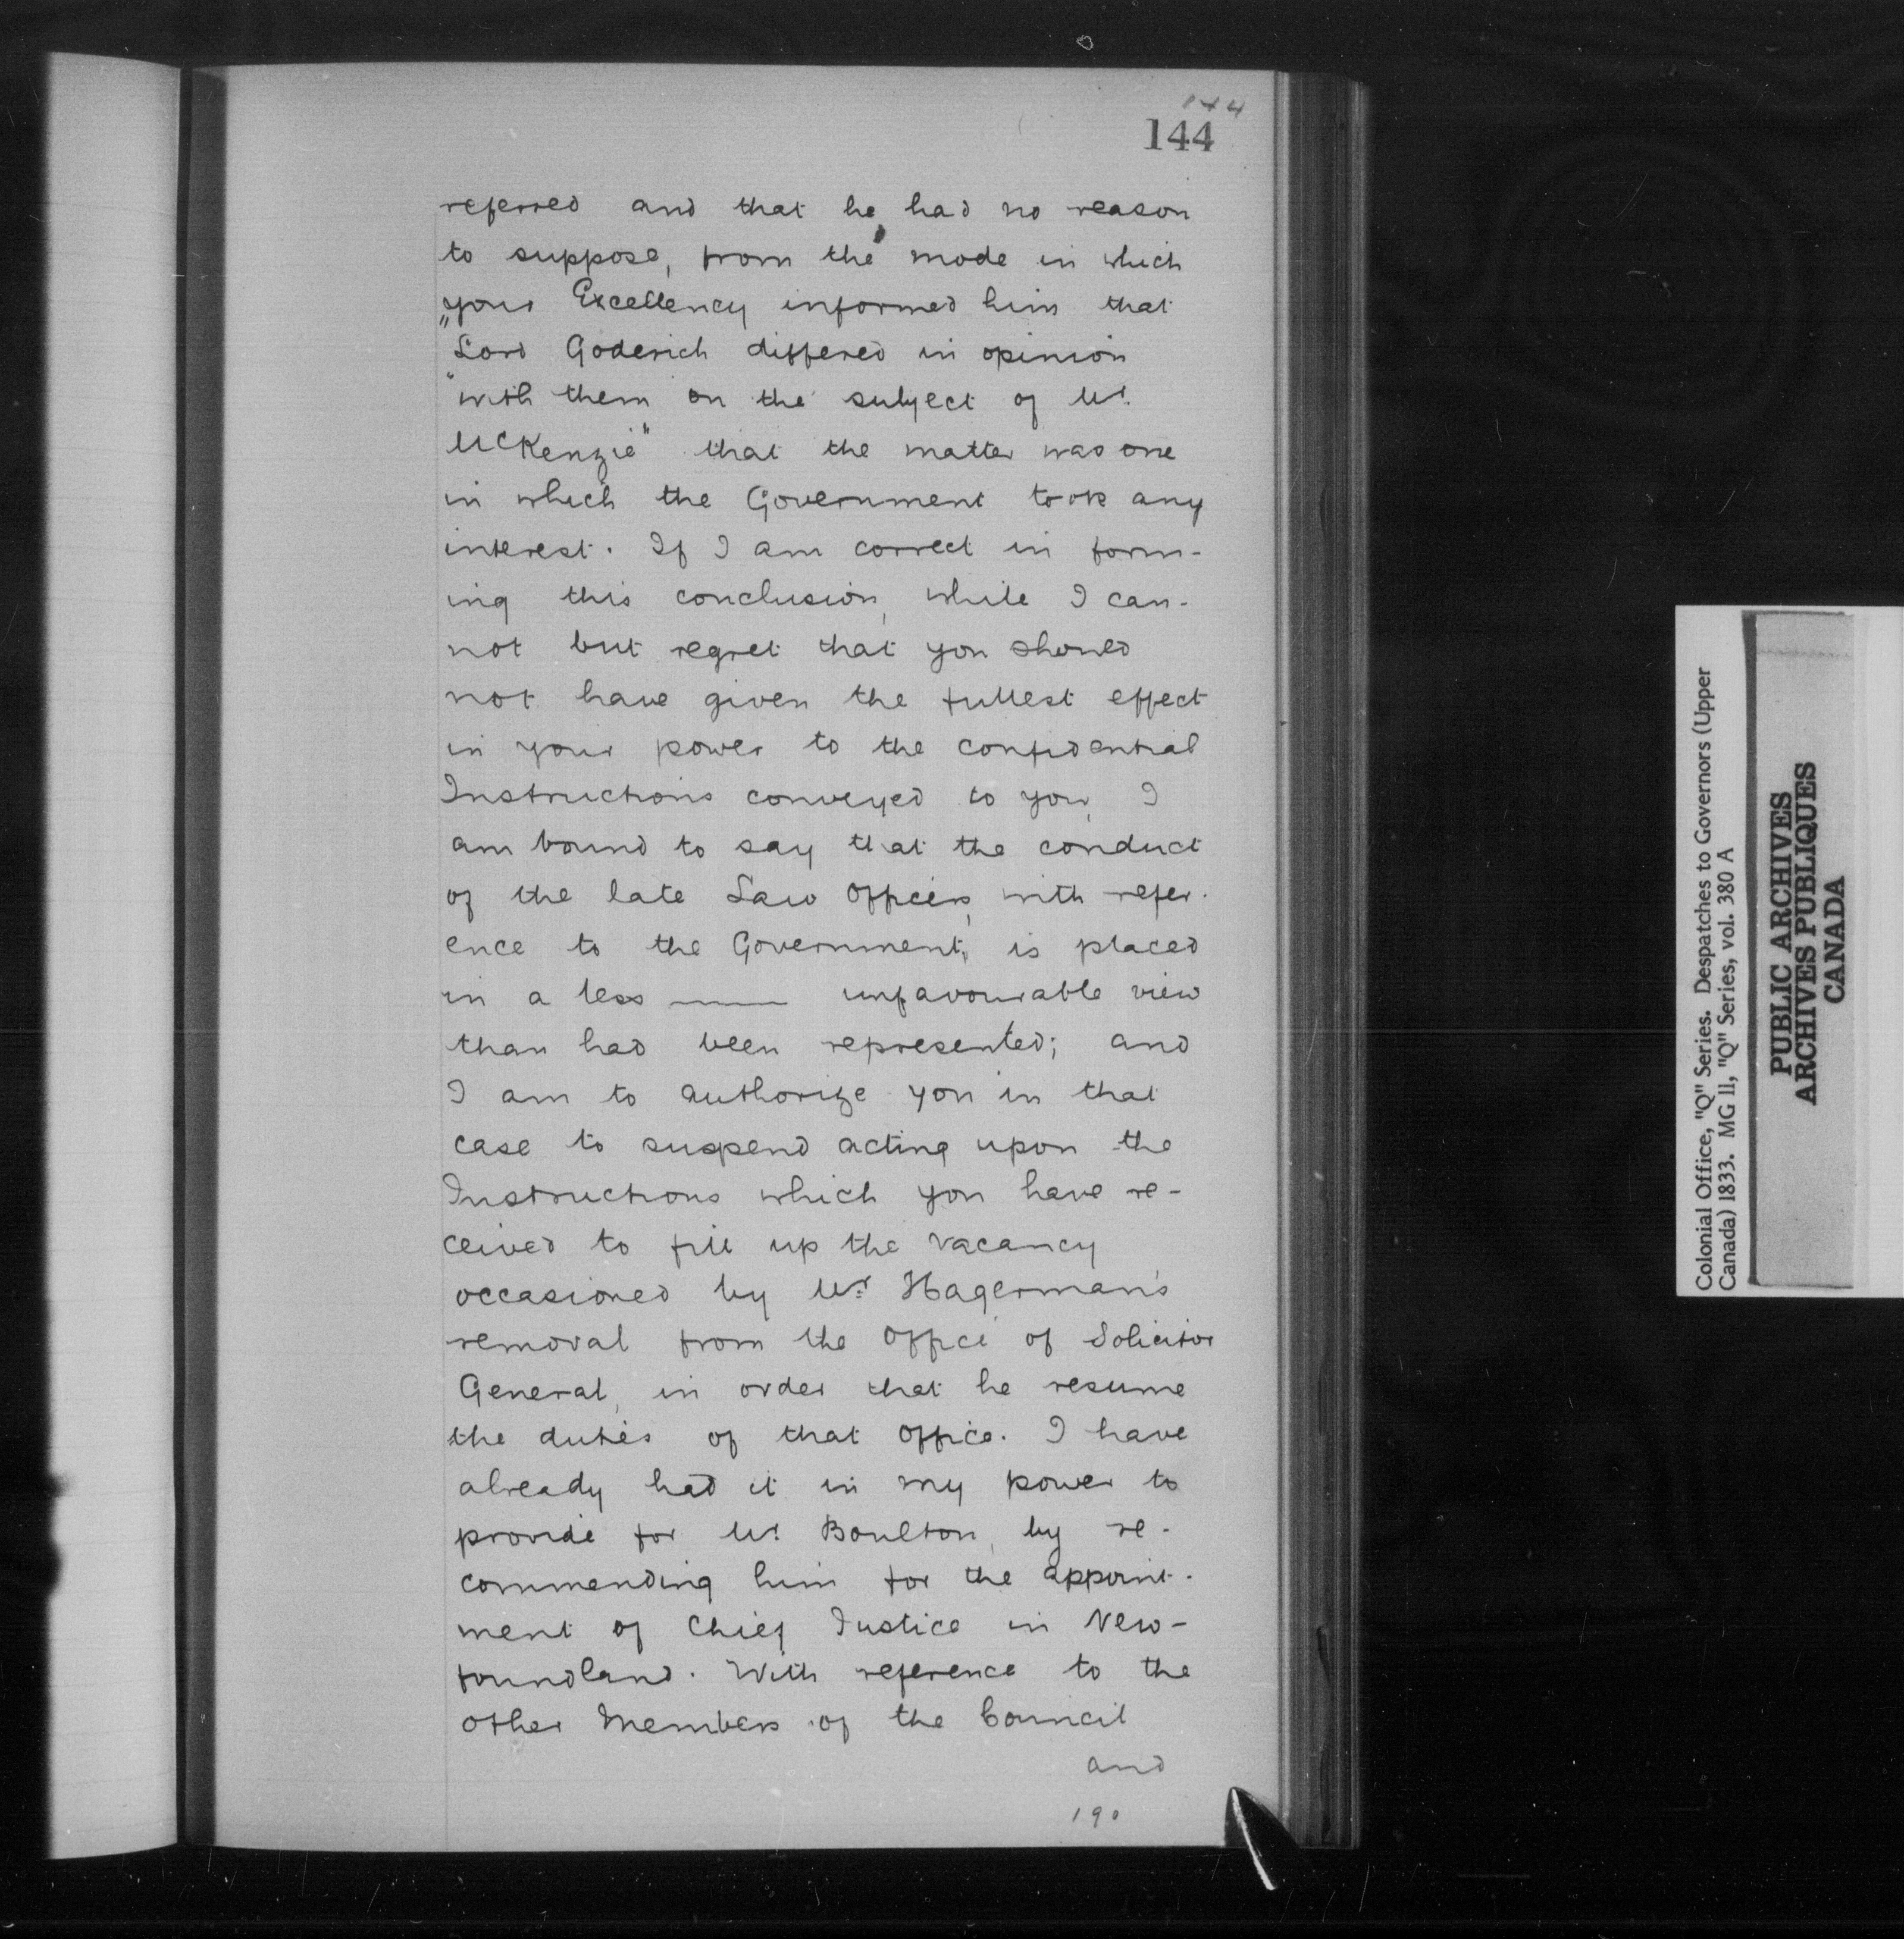 144
144
referred and that he, had no reason
to suppose, from the mode in which
"your Excellency informed him that
Lord Goderich differed in opinion
"with them on the subject of Mr.
McKenzie" that the matter was one
in which the Government took any
interest. If I am correct in form-
ing this conclusion, while I can-
not but regret that you should
not have given the fullest effect
in your power to the confidential
Instructions conveyed to you, I
am bound to say that the conduct
of the late Law Officers, with refer-
ence to the Government, is placed
in a less —— unfavourable view
than had been represented; and
I am to authorize you in that
case to suspend acting upon the
Instructions which you have re-
ceived to fill up the vacancy
occasioned by Mr. Hagerman's
removal from the Office of Solicitor
General, in order that he resume
the duties of that Office. I have
already had it in my power to
provide for Mr Boulton, by re-
commending him for the appoint-
ment of Chief Justice in New-
foundland. With reference to the
other Members of the Council
and
190
Colonial Office, "Q" Series. Despatches to Governors (Upper
Canada) 1833. MG 11, "Q" Series, vol. 380 A
PUBLIC ARCHIVES
ARCHIVES PUBLIQUES
CANADA